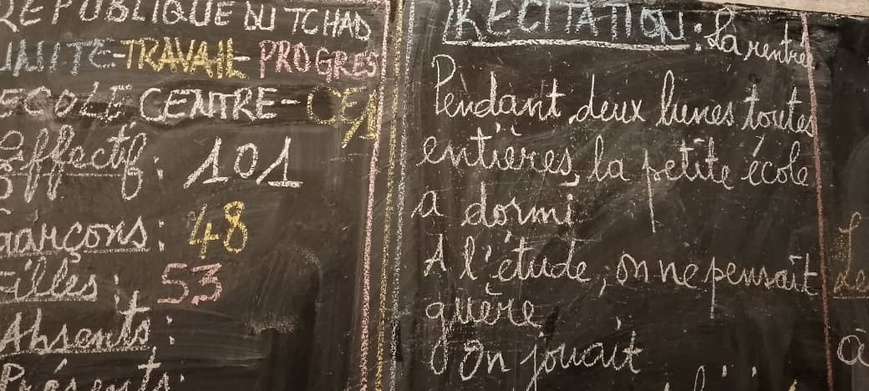 REPUBLIQUE DU TCHAD
UNITE-TRAVAIL PROGRES
ECOLE CENTRE-CE1
Effectif: 101
garçons: 48
Filles: 53
Absents:
Présents:
RECITATION: La rentrée
Pendant deux lunes toutes
entières, la petite école
a dormi
A l'étude, on ne pensait
guère
On jouait
Le
à